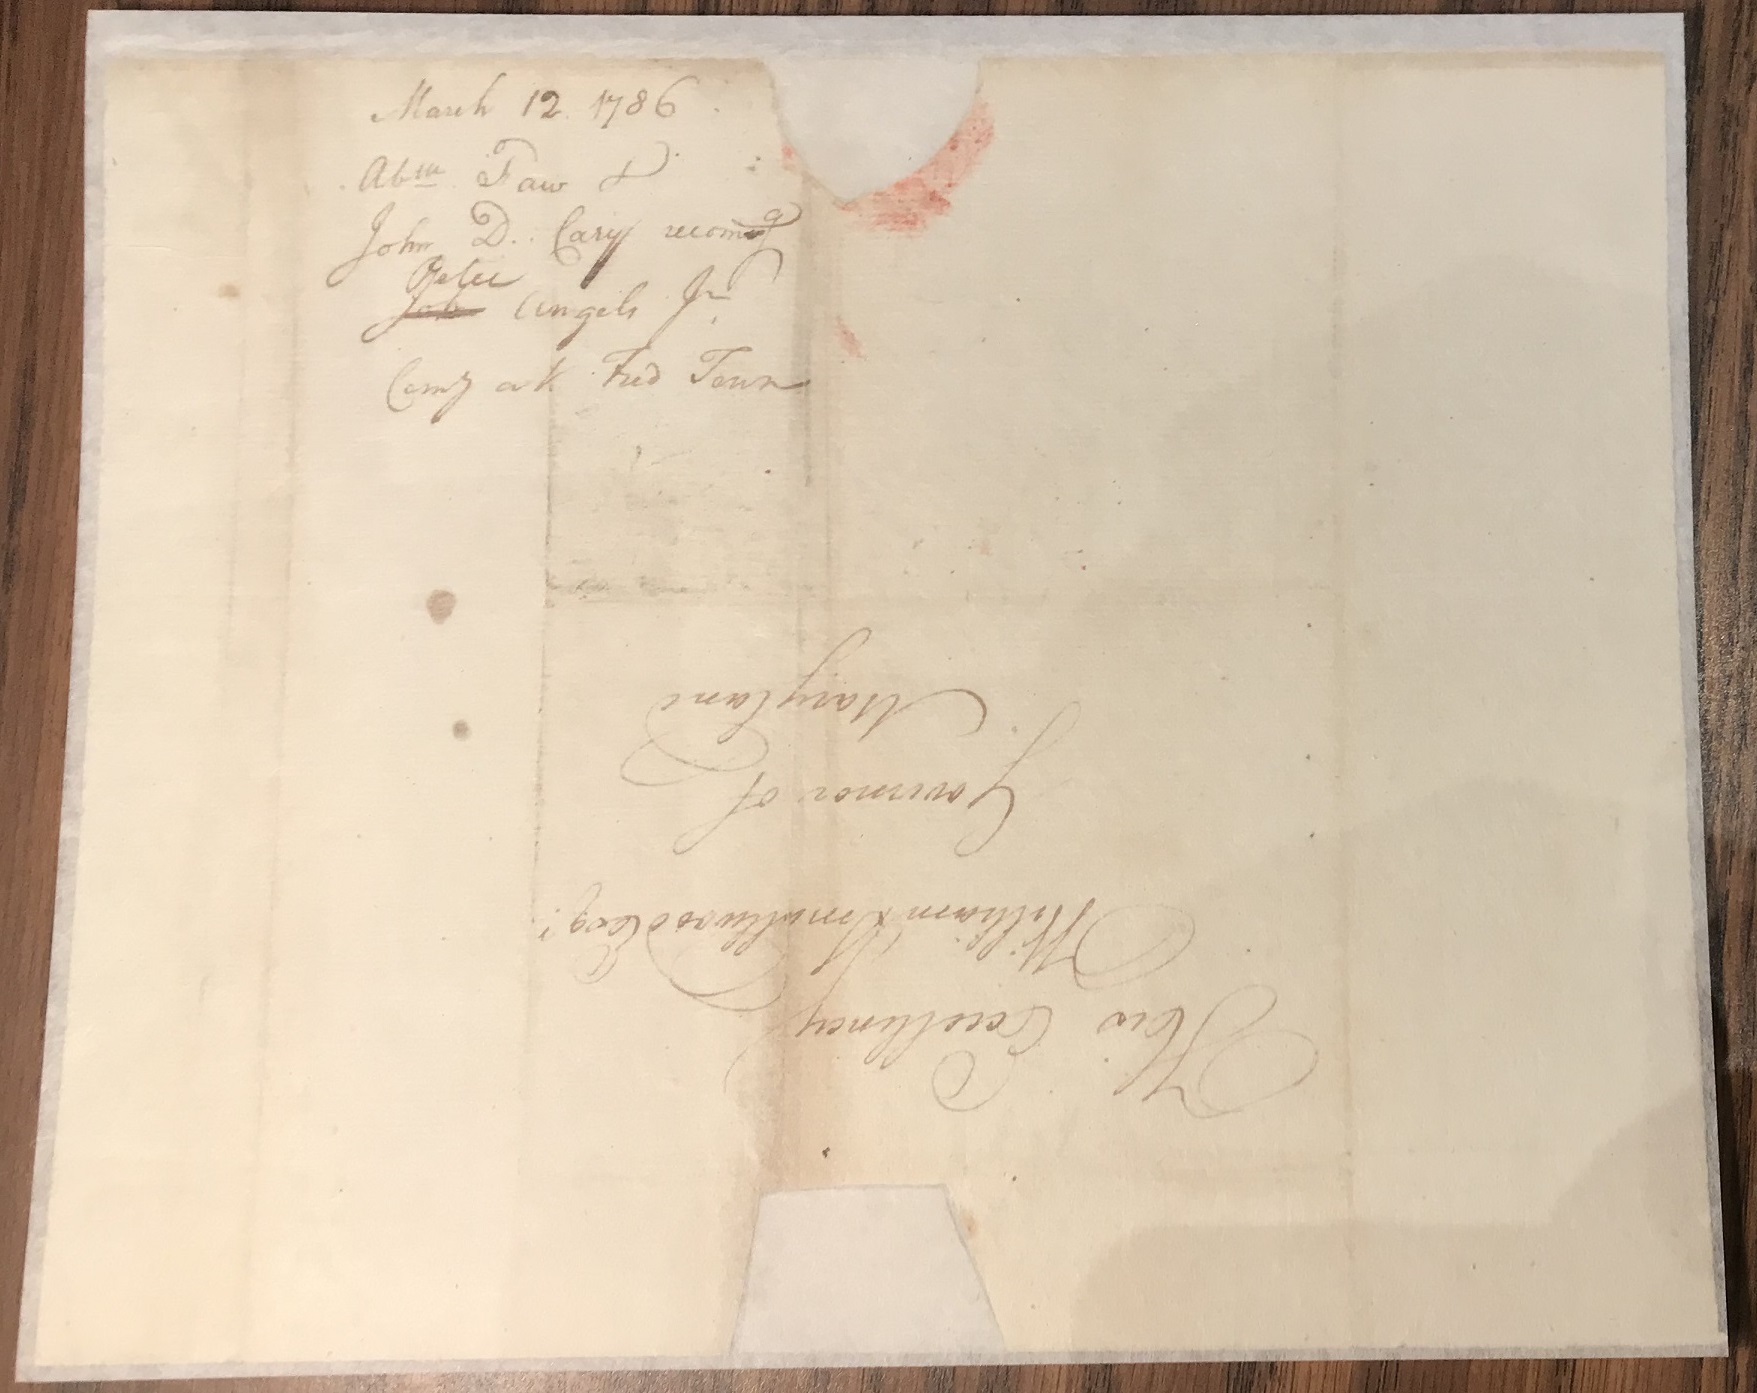 March 12. 1786.
Abm Faw &
John D. Cary recomg
Peter
Job Angels Jr.
Comy at Fred Town
His Excellency
William Smallwood Esqr.
Governor of
Maryland